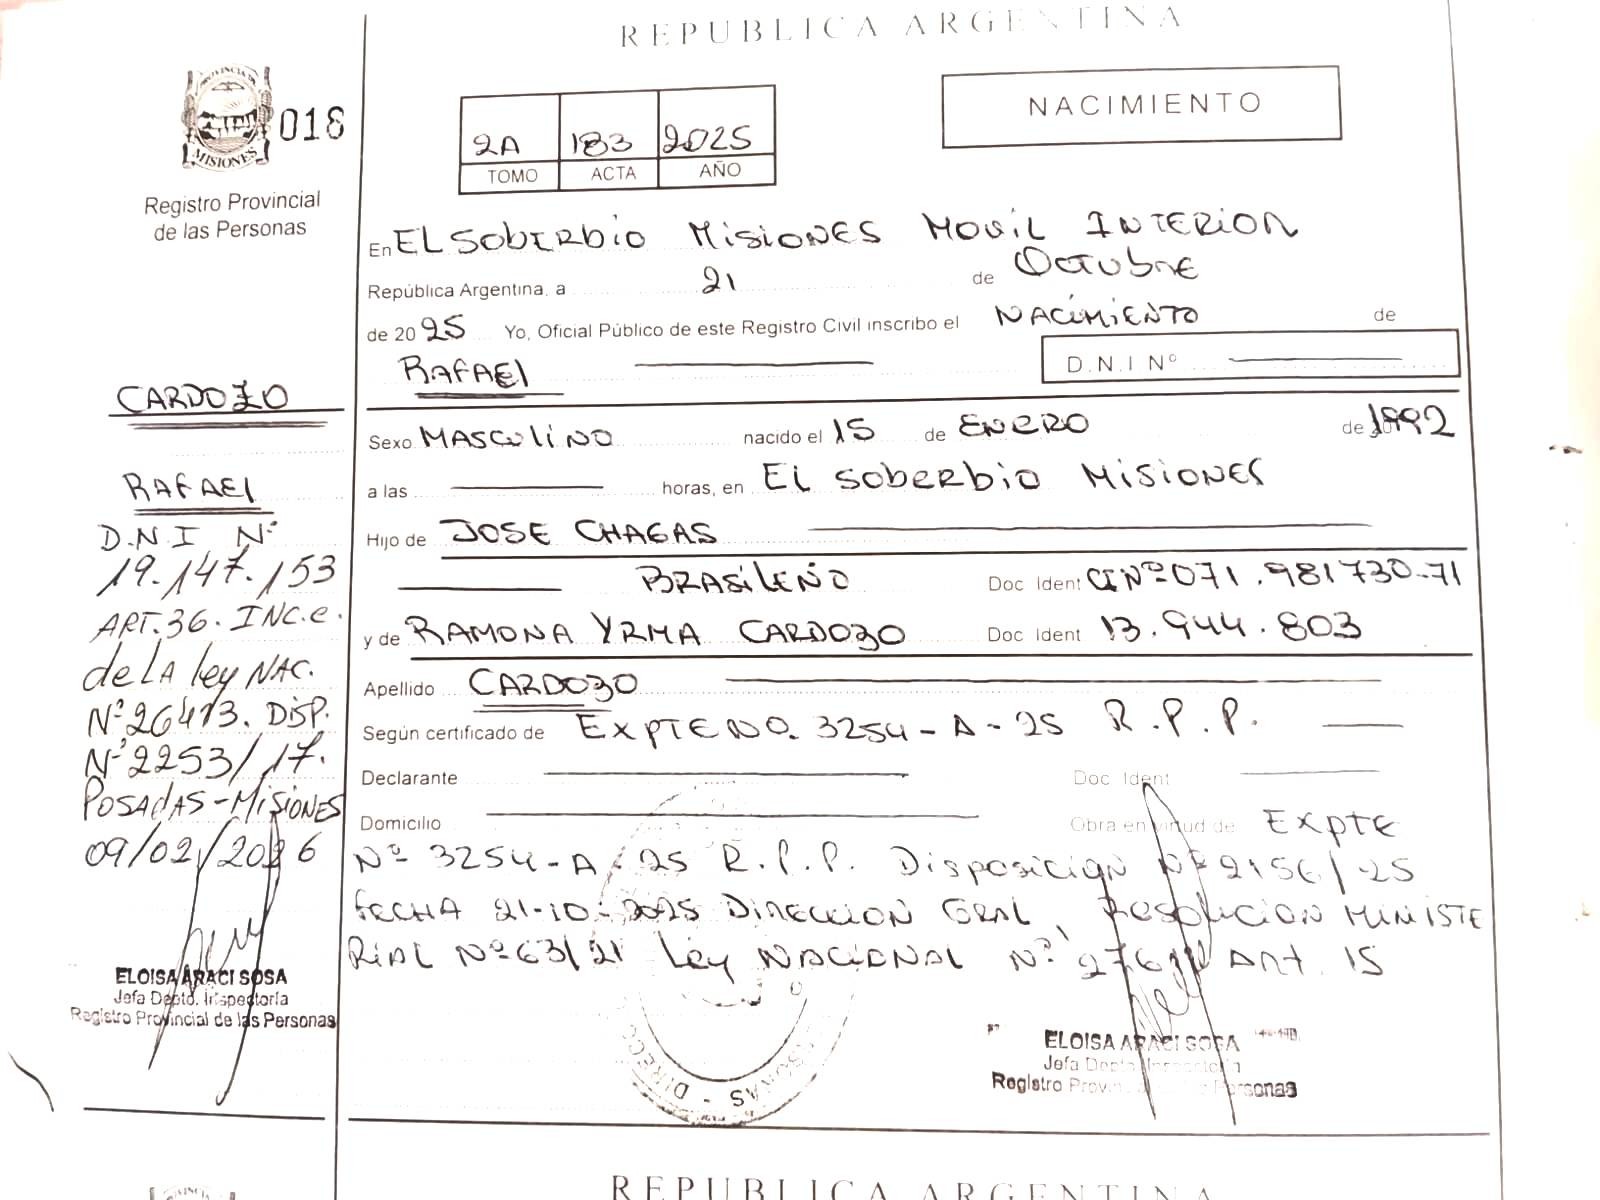 REPUBLICA ARGENTINA
PROVINCIA DE
MISIONES
016
Registro Provincial
de las Personas
2A 183 2025
TOMO ACTA AÑO
NACIMIENTO
En EL SobERbio MisioNES MOVIL INTERIOR
República Argentina, a 21 de Octubre
de 2025 Yo, Oficial Público de este Registro Civil inscribo el NACIMIENTO de
RAFAEl
D.N.I Nº
Sexo MASCuliNO nacido el 15 de ENERO de 1992
a las horas, en El SobERbio MisioNES
Hijo de JOSE CHAGAS
BRASILEÑO Doc Ident CI Nº 071.981730-71
y de RAMONA YRMA CARDOZO Doc Ident 13.944.803
Apellido CARDOZO
Según certificado de EXPTE NO. 3254-A-25 R.P.P.
Declarante Doc Ident
Domicilio Obra en virtud de EXPTE
Nº 3254-A-25 R.P.P. Disposicion Nº 2156/25
FECHA 21-10-2025 DIRECCION GRAL RESOLUCION MINISTE
RIAL Nº 63/21 Ley NACIONAL Nº Art 15
CARDOZO
RAFAEl
D.N.I Nº
19.147.153
ART.36. INC.e.
de LA ley NAC.
Nº 26413. DISP.
Nº 2253/17.
POSAdAS-MISIONES
09/02/2026
ELOISA ARACI SOSA
Jefa Depto. Inspectoría
Registro Provincial de las Personas
ELOISA ARACI SOSA
Jefa Depto. Inspectoría
Registro Provincial de las Personas
REPUBLICA ARGENTINA